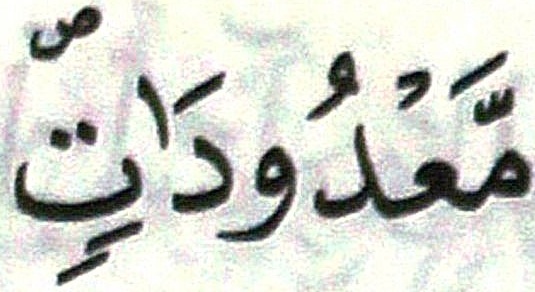 مَّعْدُودَٰتٍۖ